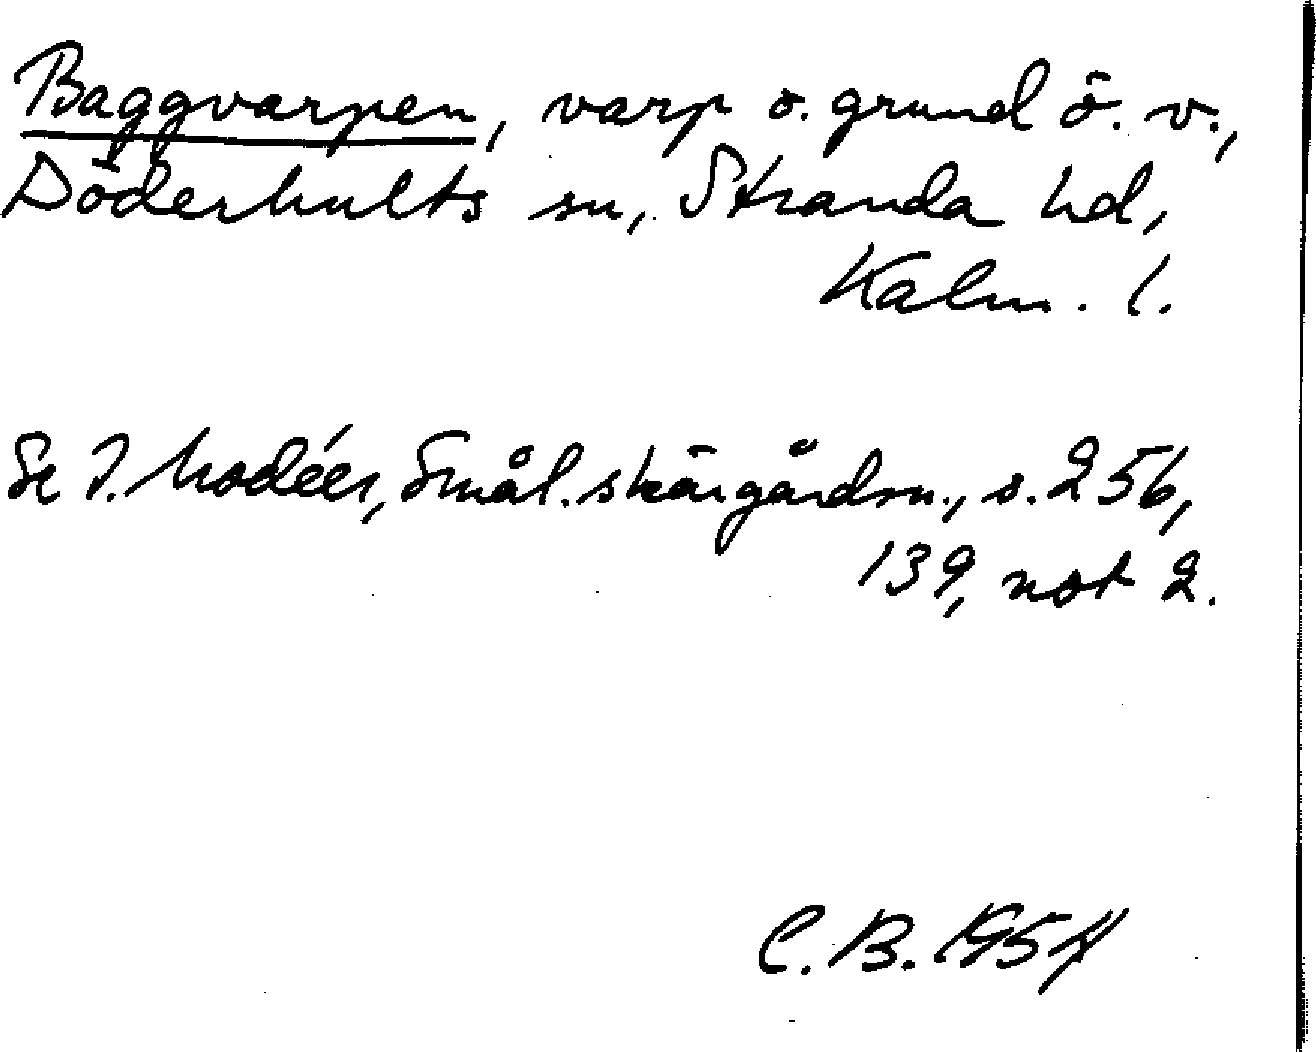 Baggvarpen, varp o. grund ö. v.,
Döderhults sn, Stranda hd,
Kalm. l.
Se I. Modéer, Smål. skärgårdsn., s. 256,
139, not 2.
C. B. 1954